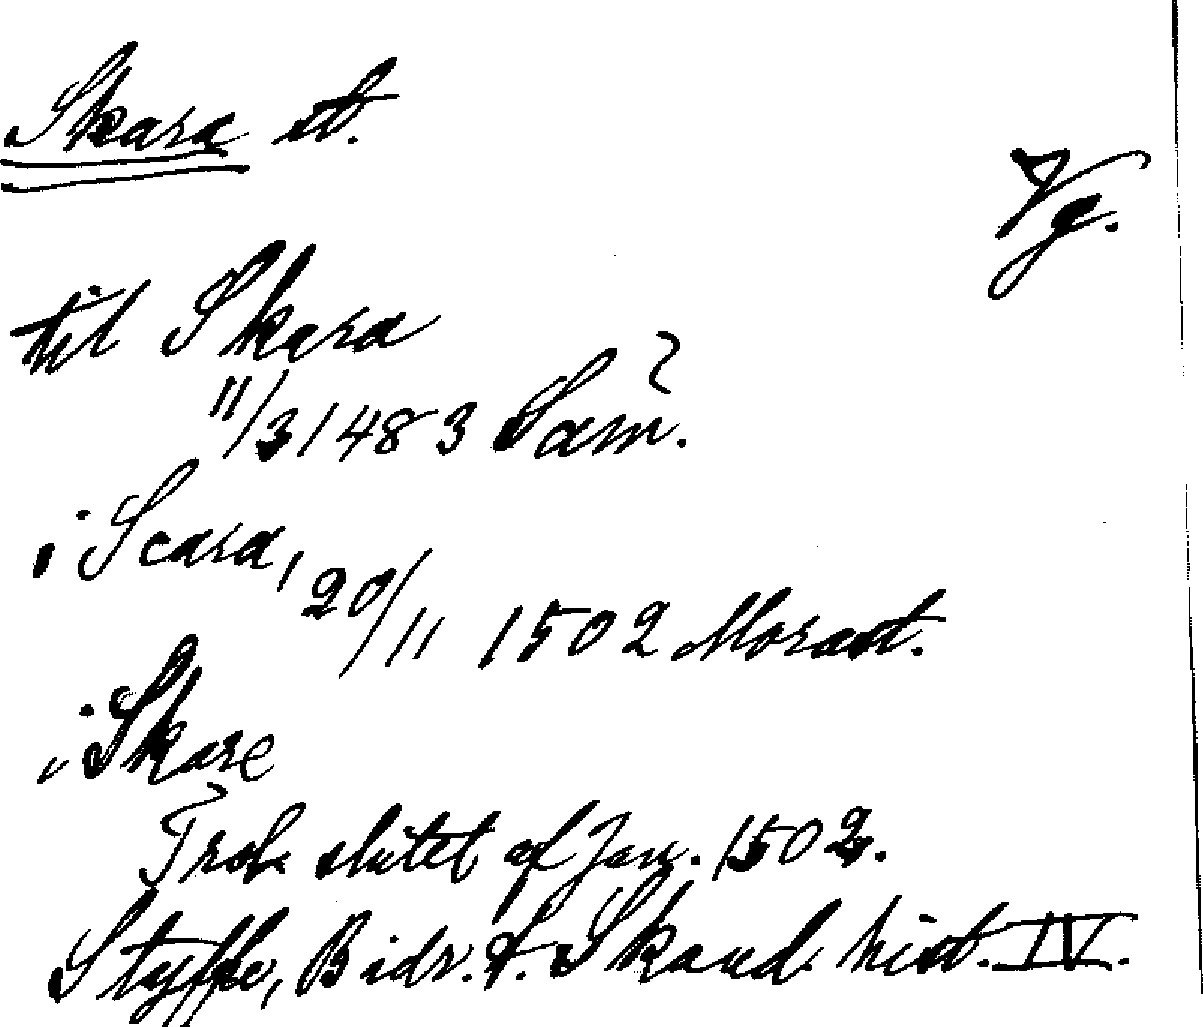 Skara st.
Vg.
til Skara
11/3 1483 Sam̃.
i Scara,
20/11 1502 Morast.
i Skare
Trol. slutet af Jan. 1502.
Styffe, Bidr. t. Skand. hist. IV.